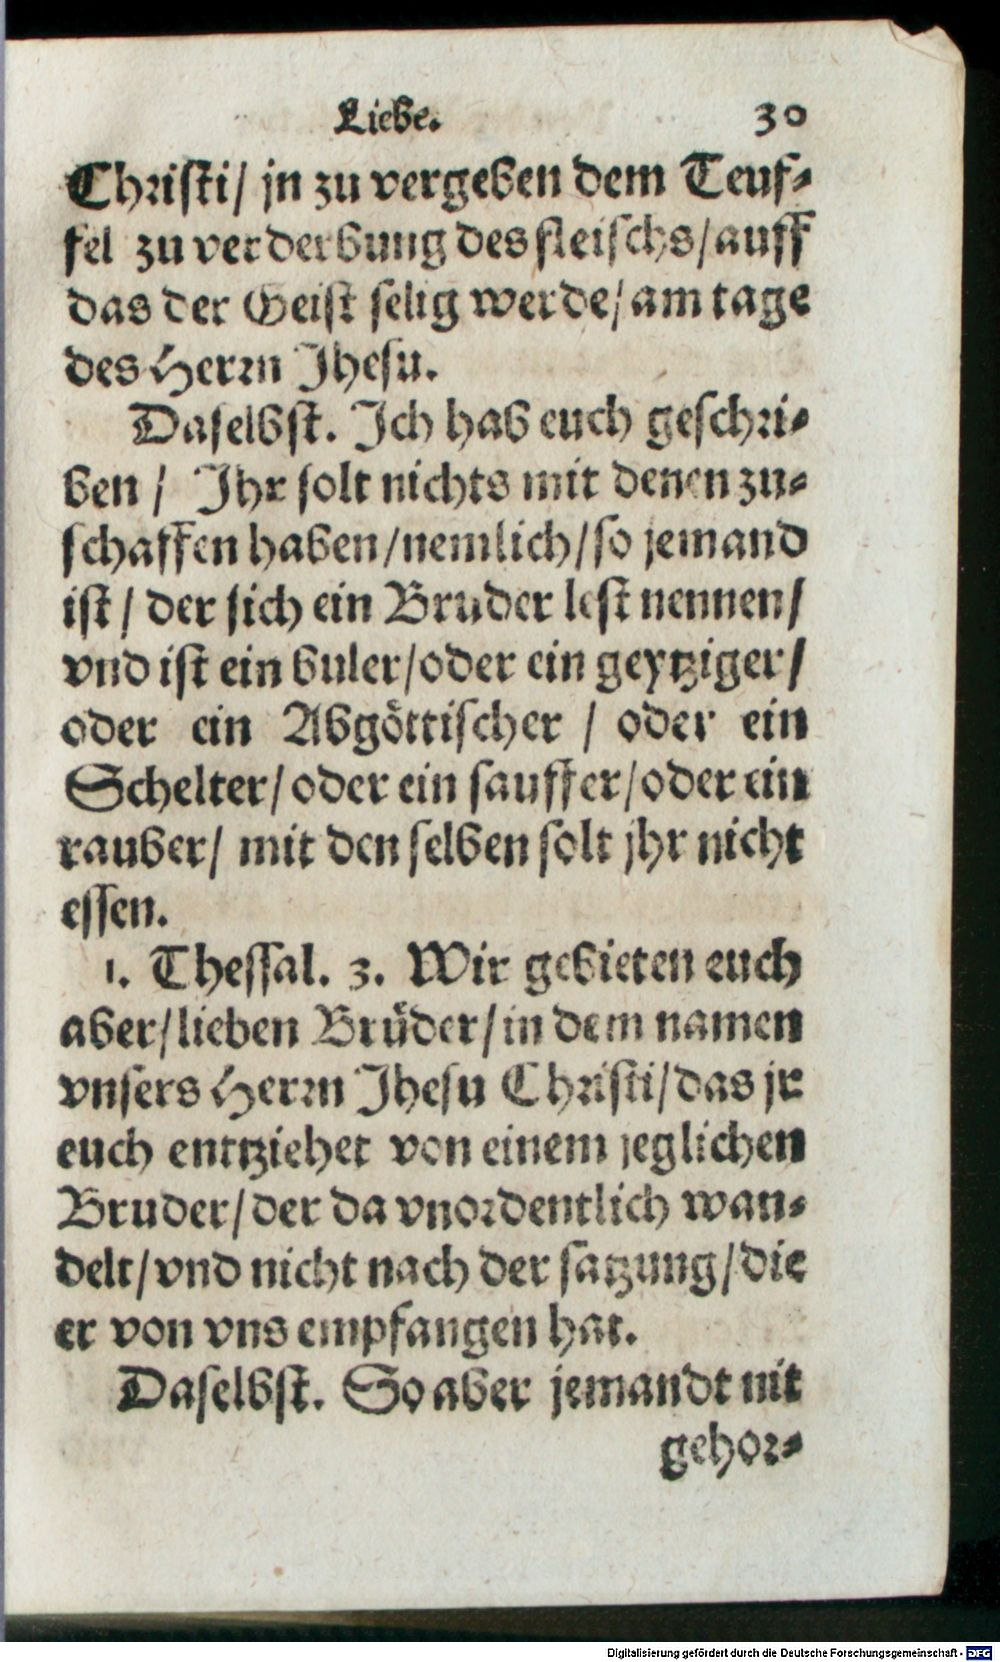 Liebe. 30
Christi/ jn zu vergeben dem Teuf-
fel zu verderbung des fleischs/ auff
das der Geist selig werde/ am tage
des Herrn Jhesu.
Daselbst. Ich hab euch geschri-
ben / Ihr solt nichts mit denen zu-
schaffen haben/ nemlich/ so jemand
ist / der sich ein Bruder lest nennen/
vnd ist ein buler/ oder ein geytziger/
oder ein Abgöttischer / oder ein
Schelter/ oder ein sauffer/ oder ein
rauber/ mit den selben solt jhr nicht
essen.
1. Thessal. 3. Wir gebieten euch
aber/ lieben Brüder/ in dem namen
vnsers Herrn Jhesu Christi/ das jr
euch entziehet von einem jeglichen
Bruder/ der da vnordentlich wan-
delt/ vnd nicht nach der satzung/ die
er von vns empfangen hat.
Daselbst. So aber jemandt nit
gehor-
Digitalisierung gefördert durch die Deutsche Forschungsgemeinschaft - DFG